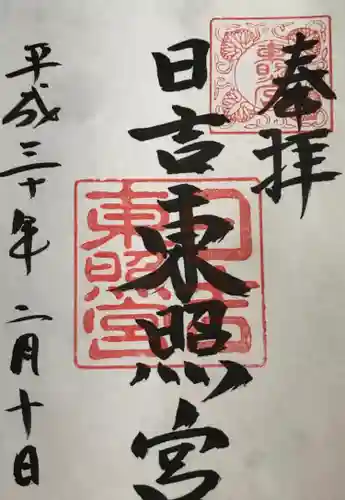 奉拝
日吉東照宮
平成三十年二月十日
日吉
東照宮
東照宮